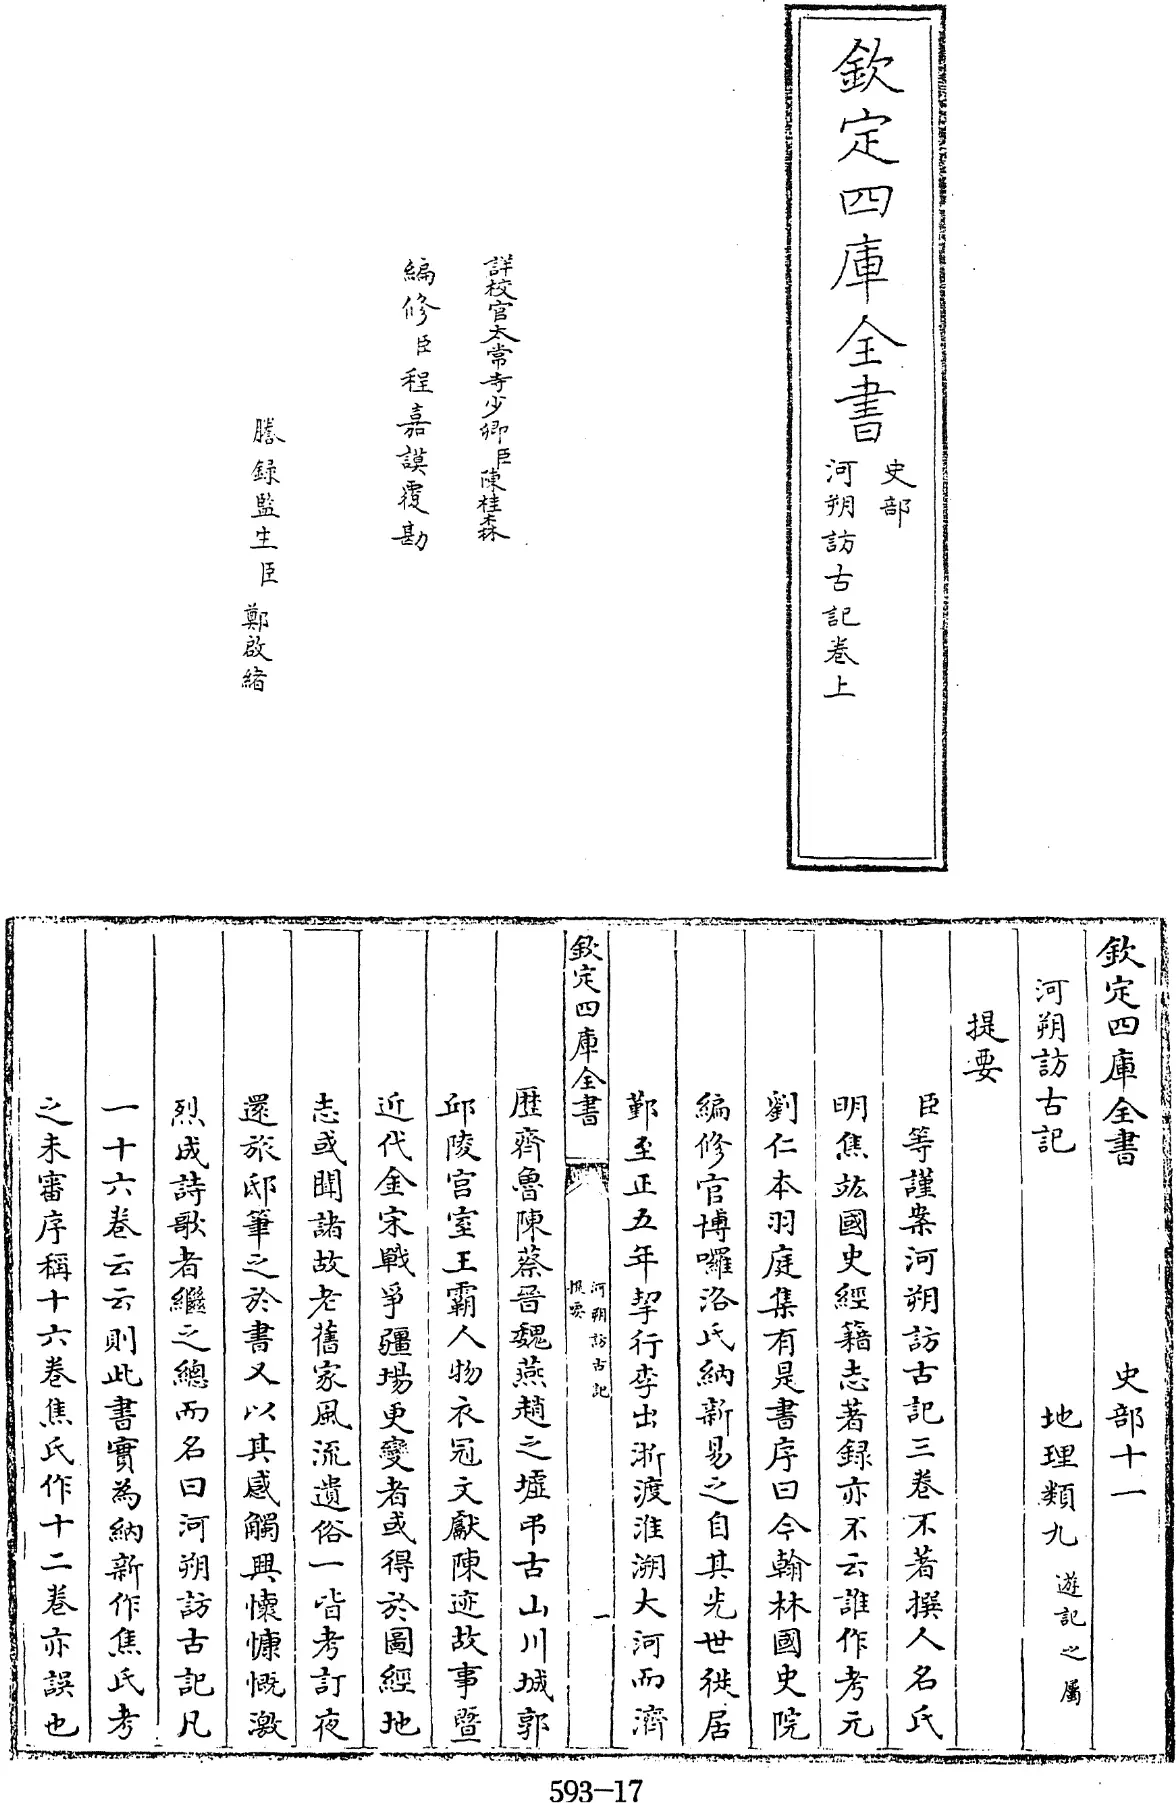 欽定四庫全書
史部
河朔訪古記卷上
詳校官太常寺少卿臣陳桂森
編修臣程嘉謨覆勘
謄録監生臣鄭啟緒
欽定四庫全書 史部十一
河朔訪古記 地理類九 遊記之屬
提要
臣等謹案河朔訪古記三卷不著撰人名氏
明焦竑國史經籍志著録亦不云誰作考元
劉仁本羽庭集有是書序曰今翰林國史院
編修官博囉洛氏納新易之自其先世徙居
鄞至正五年挈行李出浙渡淮溯大河而濟
欽定四庫全書
河朔訪古記
提要
一
歴齊魯陳蔡晉魏燕趙之墟弔古山川城郭
邱陵宫室王霸人物衣冠文獻陳迹故事暨
近代金宋戰爭疆場更變者或得於圖經地
志或聞諸故老舊家風流遺俗一皆考訂夜
還旅邸筆之於書又以其感觸興懷慷慨激
烈成詩歌者繼之總而名曰河朔訪古記凡
一十六卷云云則此書實為納新作焦氏考
之未審序稱十六卷焦氏作十二卷亦誤也
593-17